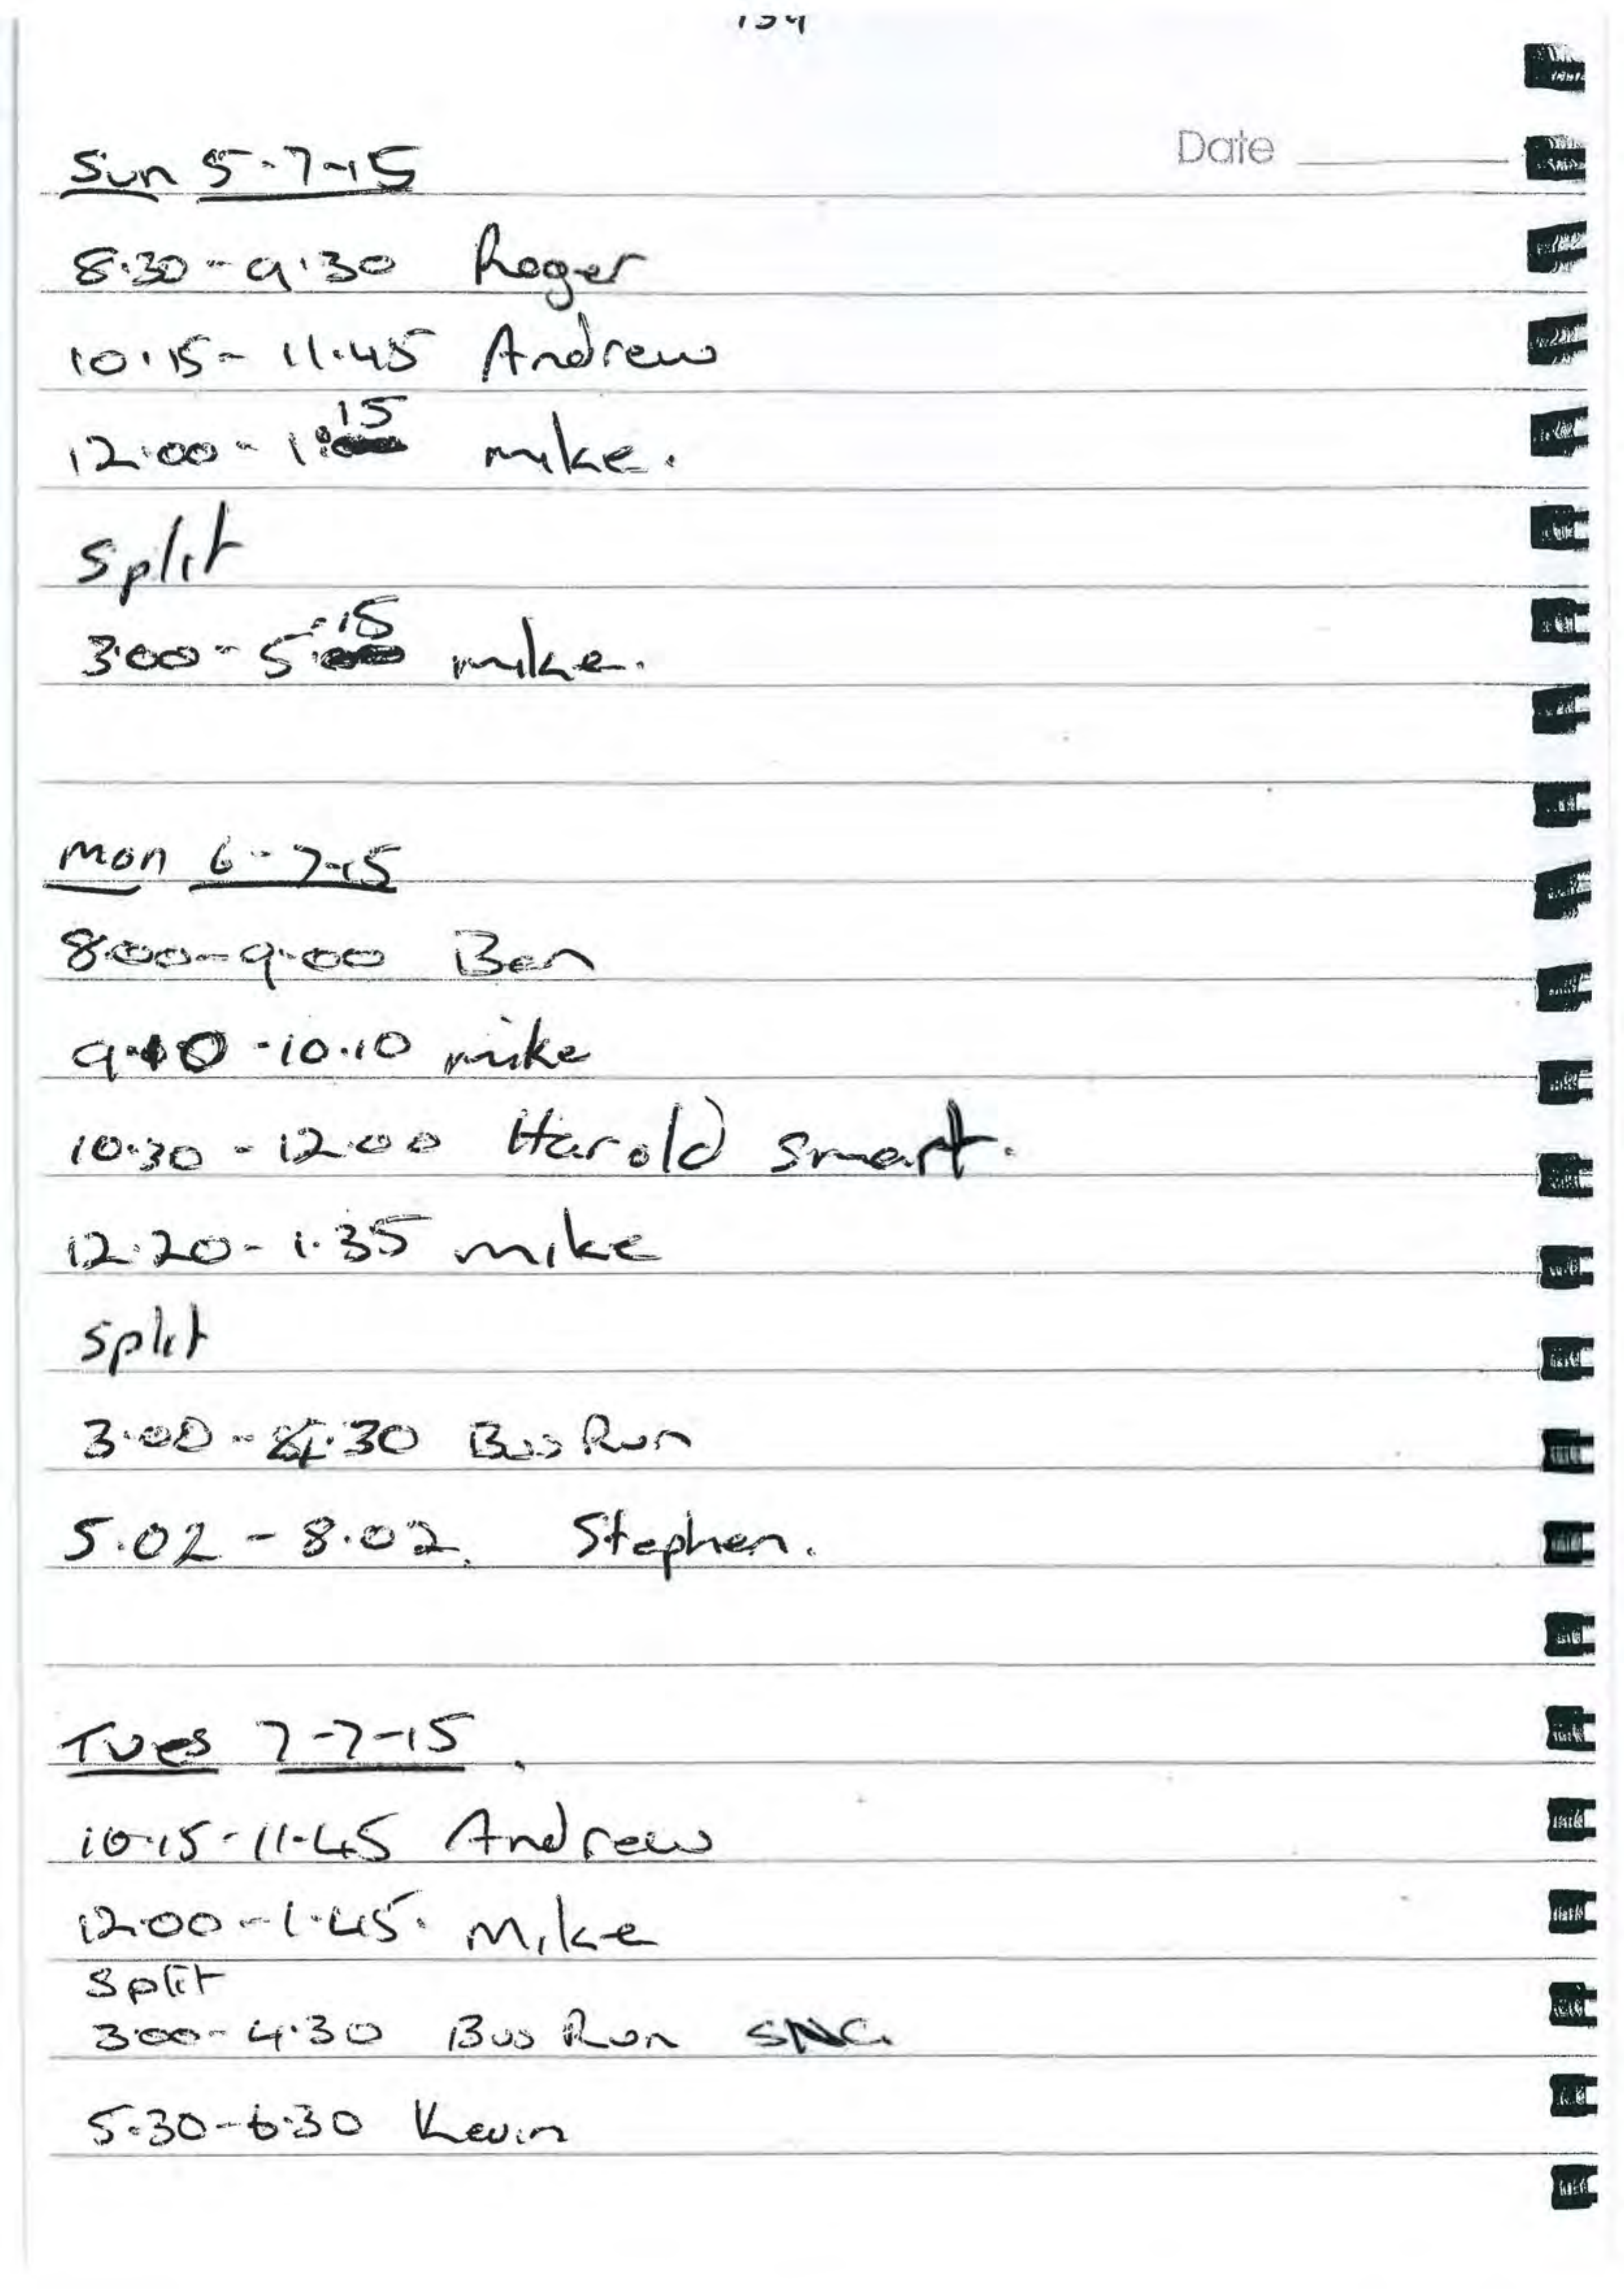 Date
Sun 5-7-15
8.30-9.30 Roger
10.15-11.45 Andrew
12.00-1:15 mike.
split
3.00-5.15 mike.
Mon 6-7-15
8.00-9.00 Ben
9.10-10.10 mike
10.30-12.00 Harold smart.
12.20-1.35 mike
split
3.00-4.30 Bus Run
5.02-8.02. Stephen.
Tues 7-7-15.
10.15-11.45 Andrew
12.00-1.45. Mike
Split
3.00-4.30 Bus Run SNG
5.30-6.30 Kevin